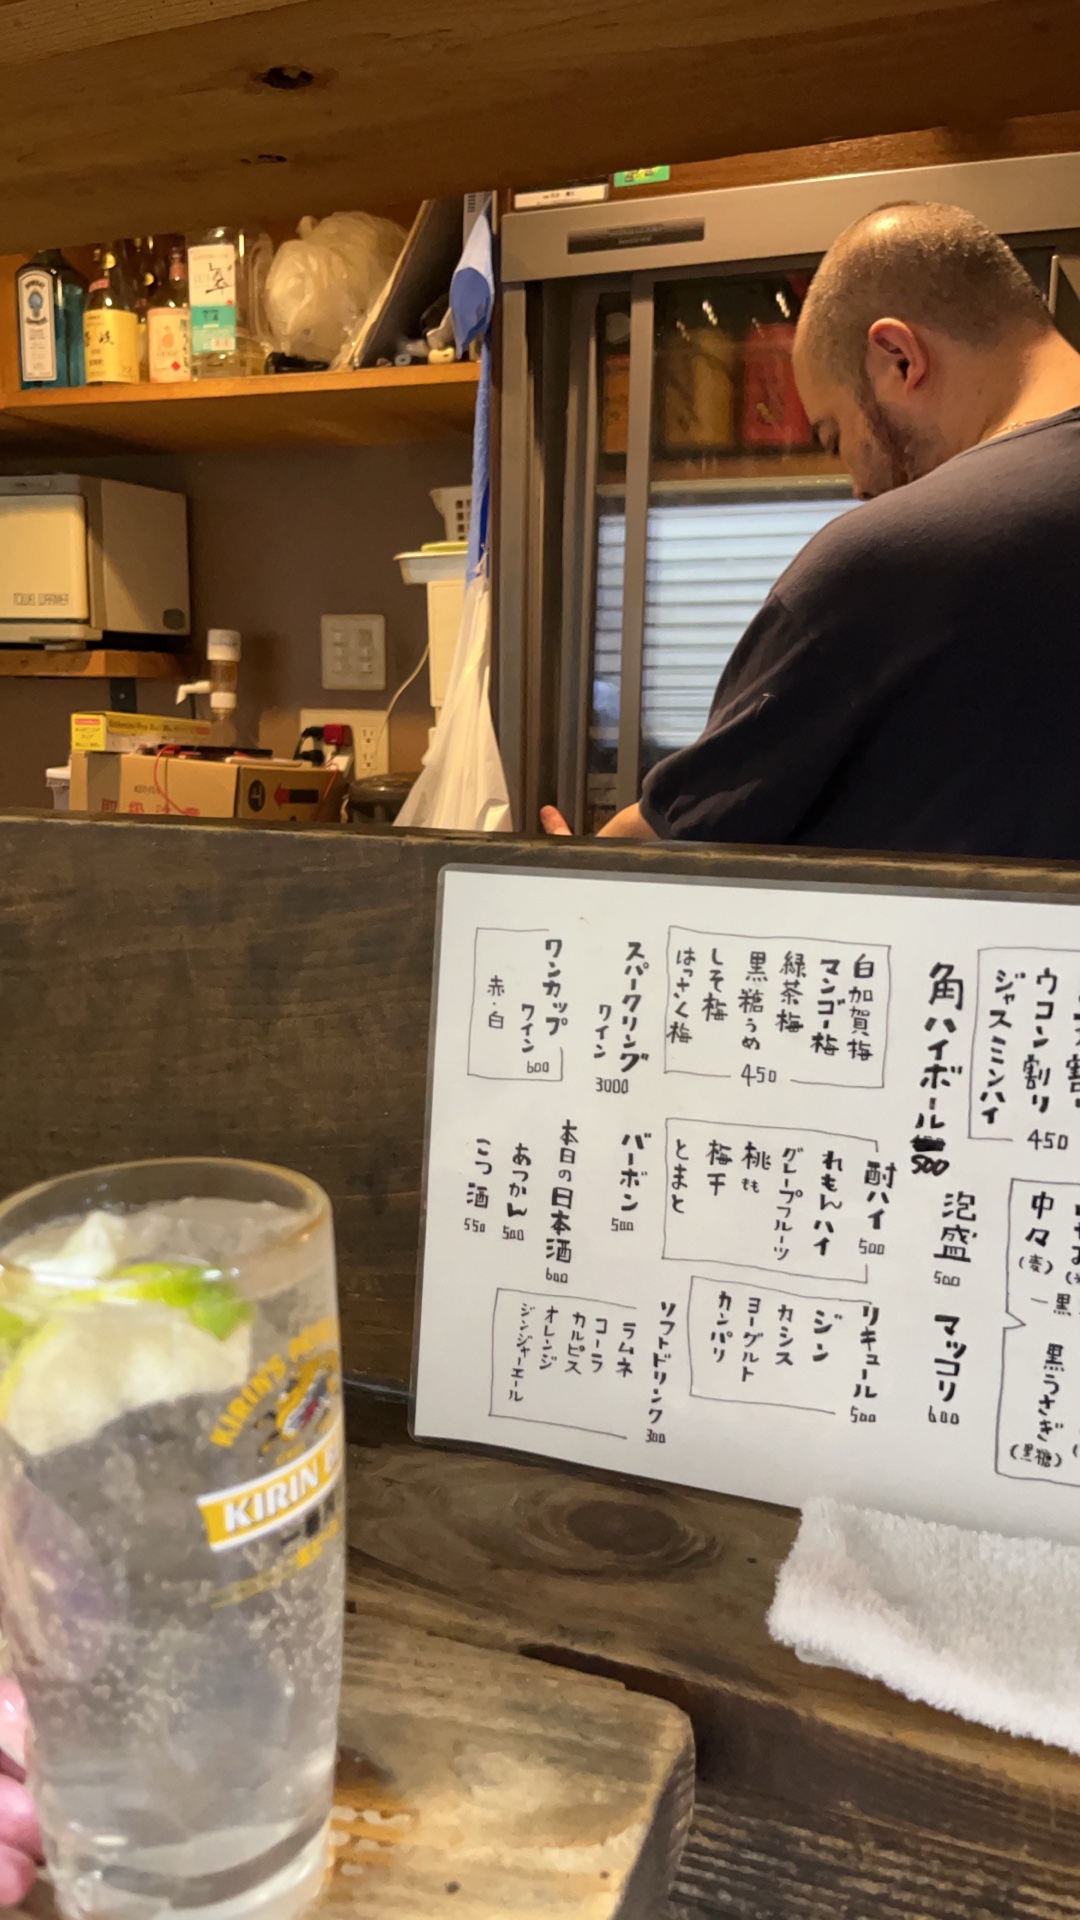 ウコン割り
ジャスミンハイ
450
角ハイボール
500
白加賀梅
マンゴー梅
緑茶梅
黒糖うめ
しそ梅
はっさく梅
450
スパークリング
ワイン
3000
ワンカップ
ワイン
600
赤・白
中々
(麦)
黒うさぎ
(黒糖)
泡盛
500
マッコリ
600
酎ハイ
500
れもんハイ
グレープフルーツ
桃もも
梅干
とまと
リキュール
500
ジン
カシス
ヨーグルト
カンパリ
バーボン
500
本日の日本酒
600
あつかん
500
こつ酒
550
ソフトドリンク
300
ラムネ
コーラ
カルピス
オレンジ
ジンジャーエール
KIRIN
TOWEL WARMER
翠